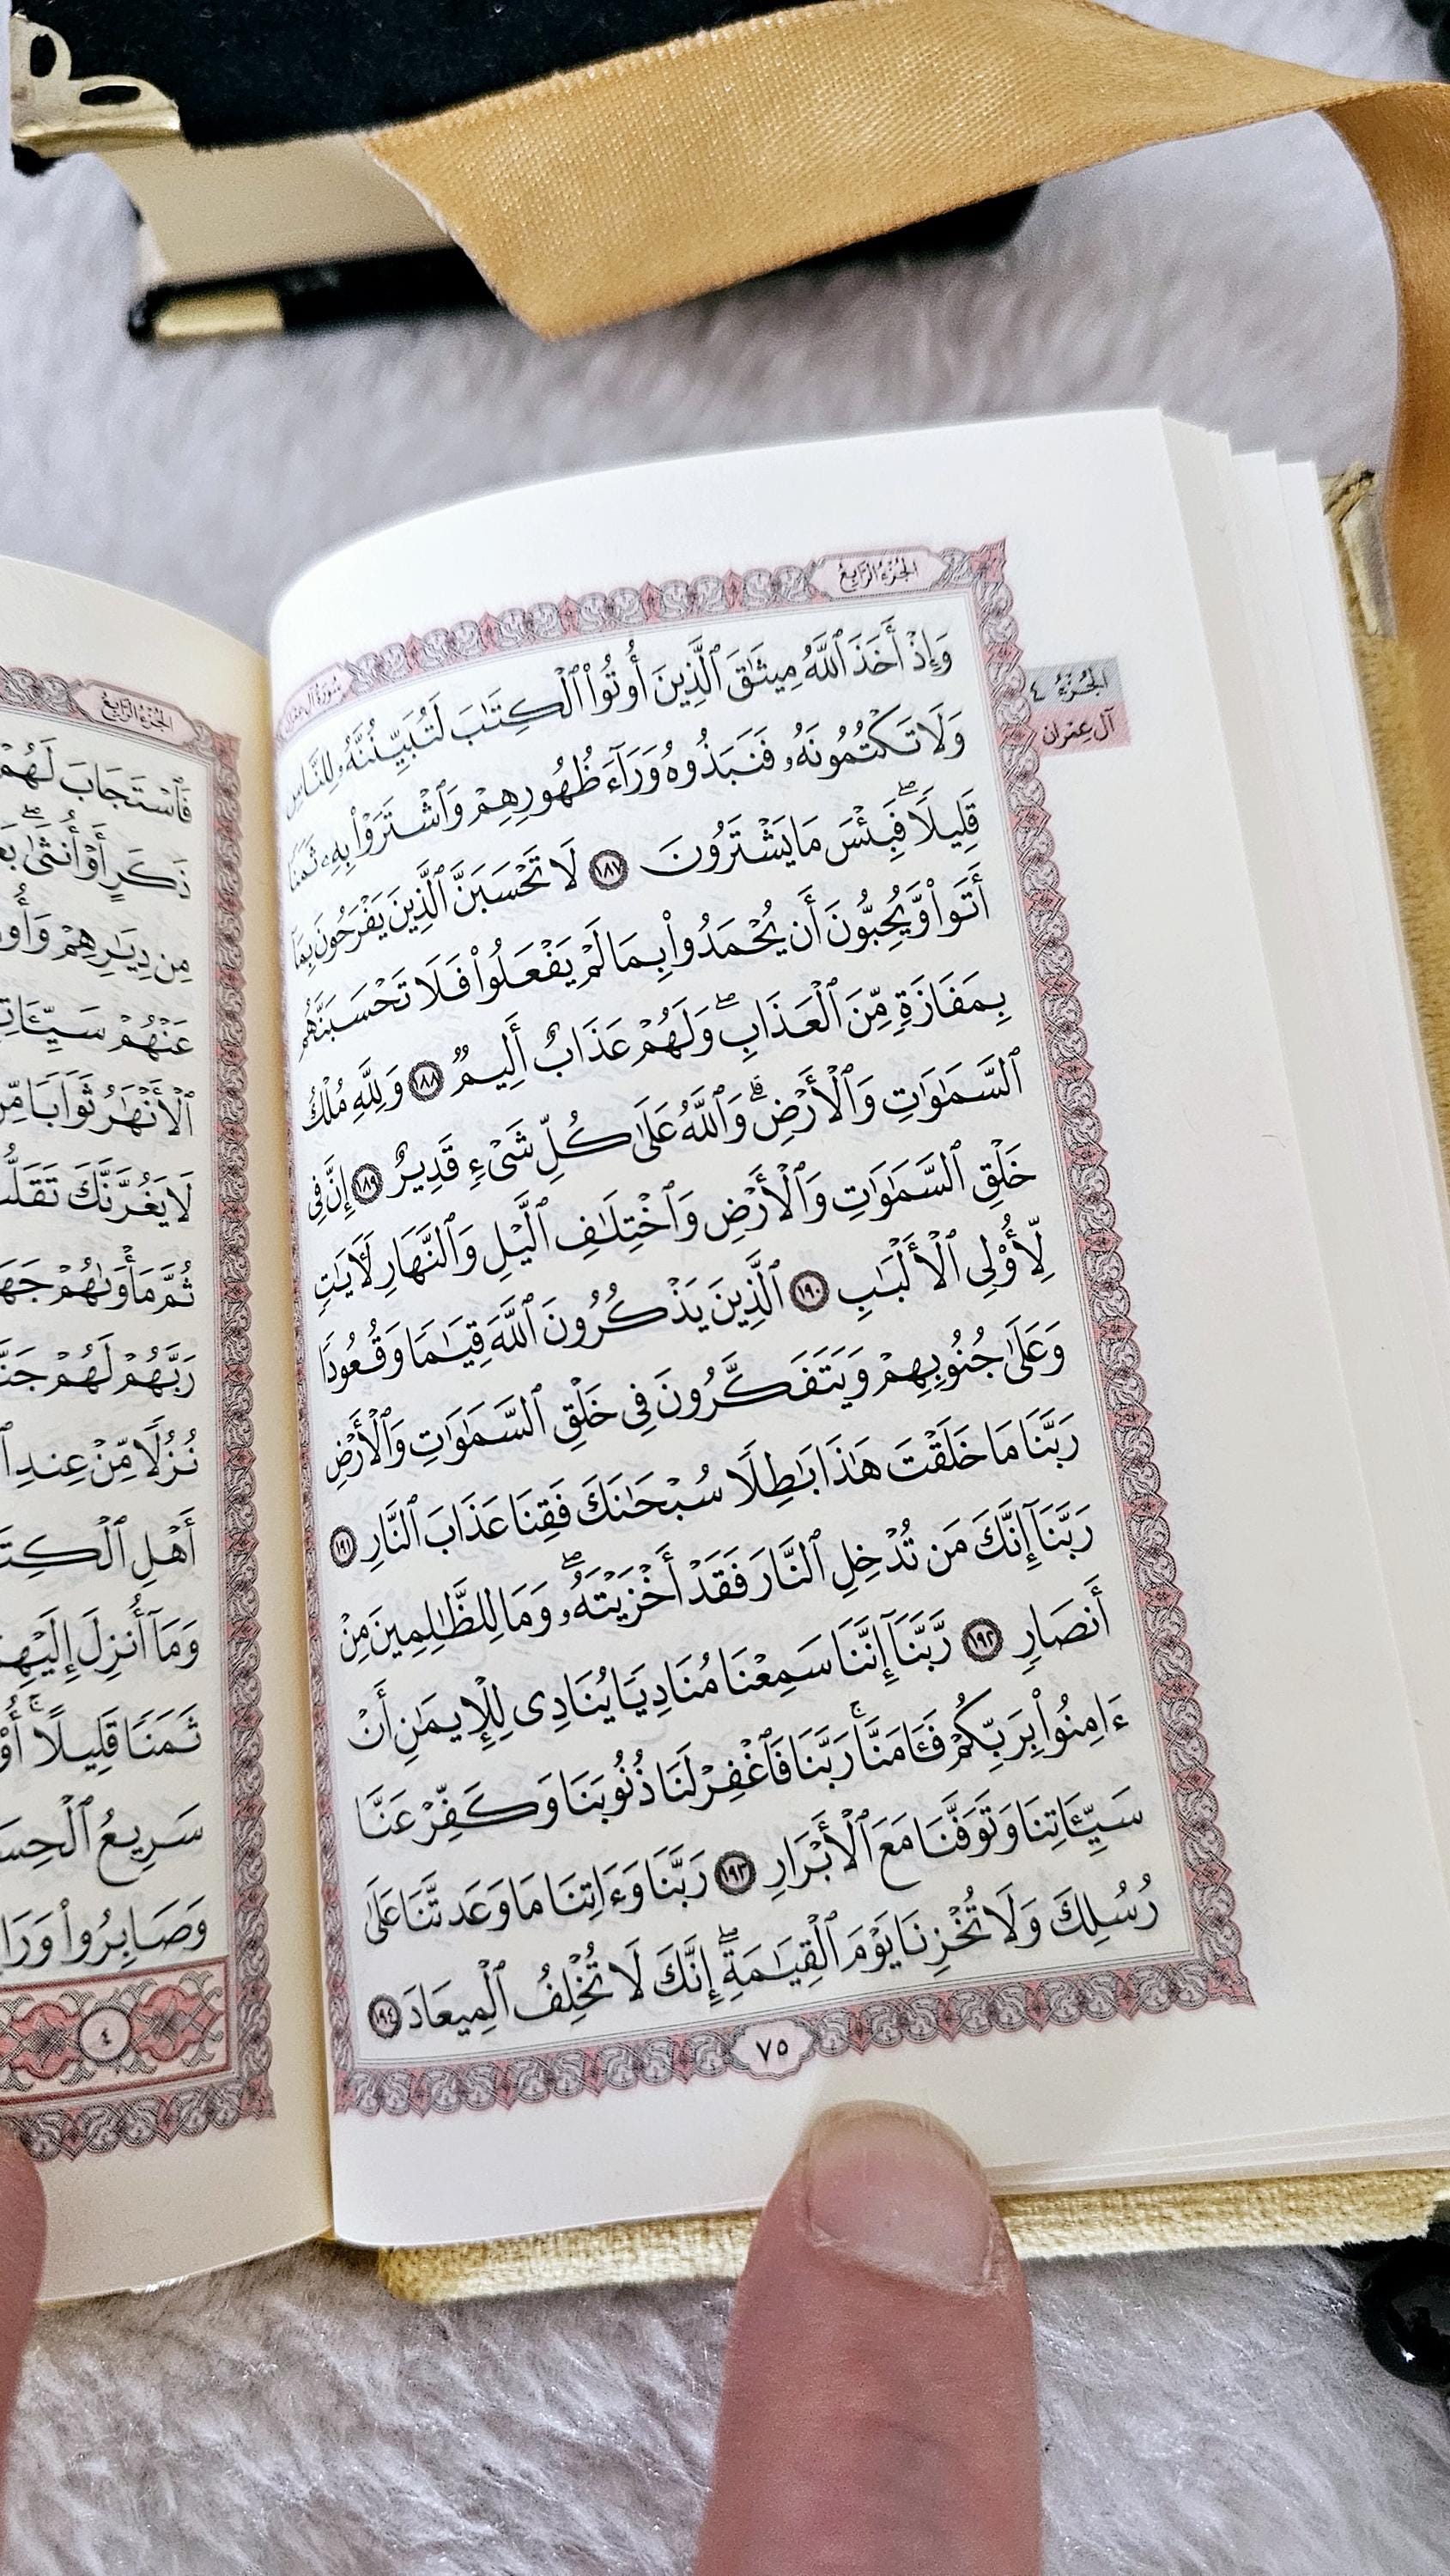 الجُزْءُ الرَّابِعُ
سُورَةُ آلِ عِمْرَان
الجُزْءُ ٤
آل عِمْرَان
وَإِذْ أَخَذَ ٱللَّهُ مِيثَٰقَ ٱلَّذِينَ أُوتُوا۟ ٱلْكِتَٰبَ لَتُبَيِّنُنَّهُۥ لِلنَّاسِ
وَلَا تَكْتُمُونَهُۥ فَنَبَذُوهُ وَرَآءَ ظُهُورِهِمْ وَٱشْتَرَوْا۟ بِهِۦ ثَمَنًا
قَلِيلًا ۖ فَبِئْسَ مَا يَشْتَرُونَ ١٨٧ لَا تَحْسَبَنَّ ٱلَّذِينَ يَفْرَحُونَ بِمَآ
أَتَوا۟ وَّيُحِبُّونَ أَن يُحْمَدُوا۟ بِمَا لَمْ يَفْعَلُوا۟ فَلَا تَحْسَبَنَّهُم
بِمَفَازَةٍ مِّنَ ٱلْعَذَابِ ۖ وَلَهُمْ عَذَابٌ أَلِيمٌ ١٨٨ وَلِلَّهِ مُلْكُ
ٱلسَّمَٰوَٰتِ وَٱلْأَرْضِ ۗ وَٱللَّهُ عَلَىٰ كُلِّ شَىْءٍ قَدِيرٌ ١٨٩ إِنَّ فِى
خَلْقِ ٱلسَّمَٰوَٰتِ وَٱلْأَرْضِ وَٱخْتِلَٰفِ ٱلَّيْلِ وَٱلنَّهَارِ لَءَايَٰتٍ
لِّأُو۟لِى ٱلْأَلْبَٰبِ ١٩٠ ٱلَّذِينَ يَذْكُرُونَ ٱللَّهَ قِيَٰمًا وَقُعُودًا
وَعَلَىٰ جُنُوبِهِمْ وَيَتَفَكَّرُونَ فِى خَلْقِ ٱلسَّمَٰوَٰتِ وَٱلْأَرْضِ
رَبَّنَا مَا خَلَقْتَ هَٰذَا بَٰطِلًا سُبْحَٰنَكَ فَقِنَا عَذَابَ ٱلنَّارِ ١٩١
رَبَّنَآ إِنَّكَ مَن تُدْخِلِ ٱلنَّارَ فَقَدْ أَخْزَيْتَهُۥ ۖ وَمَا لِلظَّٰلِمِينَ مِنْ
أَنصَارٍ ١٩٢ رَّبَّنَآ إِنَّنَا سَمِعْنَا مُنَادِيًا يُنَادِى لِلْإِيمَٰنِ أَنْ
ءَامِنُوا۟ بِرَبِّكُمْ فَـَٔامَنَّا ۚ رَبَّنَا فَٱغْفِرْ لَنَا ذُنُوبَنَا وَكَفِّرْ عَنَّا
سَيِّـَٔاتِنَا وَتَوَفَّنَا مَعَ ٱلْأَبْرَارِ ١٩٣ رَبَّنَا وَءَاتِنَا مَا وَعَدتَّنَا عَلَىٰ
رُسُلِكَ وَلَا تُخْزِنَا يَوْمَ ٱلْقِيَٰمَةِ ۗ إِنَّكَ لَا تُخْلِفُ ٱلْمِيعَادَ ١٩٤
٧٥
الجُزْءُ الرَّابِعُ
فَٱسْتَجَابَ لَهُمْ
ذَكَرٍ أَوْ أُنثَىٰ ۖ
مِن دِيَٰرِهِمْ
عَنْهُمْ
ٱلْأَنْهَٰرُ ثَوَابًا
لَا يَغُرَّنَّكَ
ثُمَّ مَأْوَىٰهُمْ
رَبَّهُمْ لَهُمْ
نُزُلًا مِّنْ عِندِ
أَهْلِ
وَمَآ أُنزِلَ
ثَمَنًا قَلِيلًا ۗ
سَرِيعُ
وَصَابِرُوا۟
٤